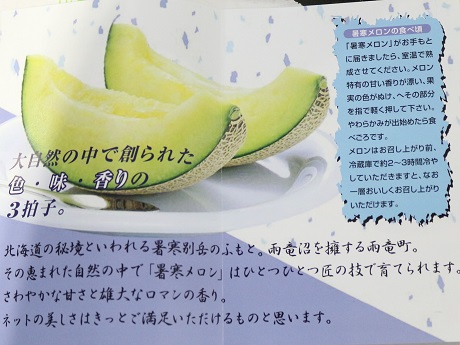 暑寒メロンの食べ頃
「暑寒メロン」がお手もと
に届きましたら、室温で熟
成させてください。メロン
特有の甘い香りが漂い、果
実の色がぬけ、へその部分
を指で軽く押して下さい。
やわらかみが出始めたら食
べごろです。
メロンはお召し上がり前、
冷蔵庫で約2～3時間冷や
していただきますと、なお
一層おいしくお召し上がり
いただけます。
大自然の中で創られた
色・味・香りの
3拍子。
北海道の秘境といわれる暑寒別岳のふもと。雨竜沼を擁する雨竜町。
その恵まれた自然の中で「暑寒メロン」はひとつひとつ匠の技で育てられます。
さわやかな甘さと雄大なロマンの香り。
ネットの美しさはきっとご満足いただけるものと思います。